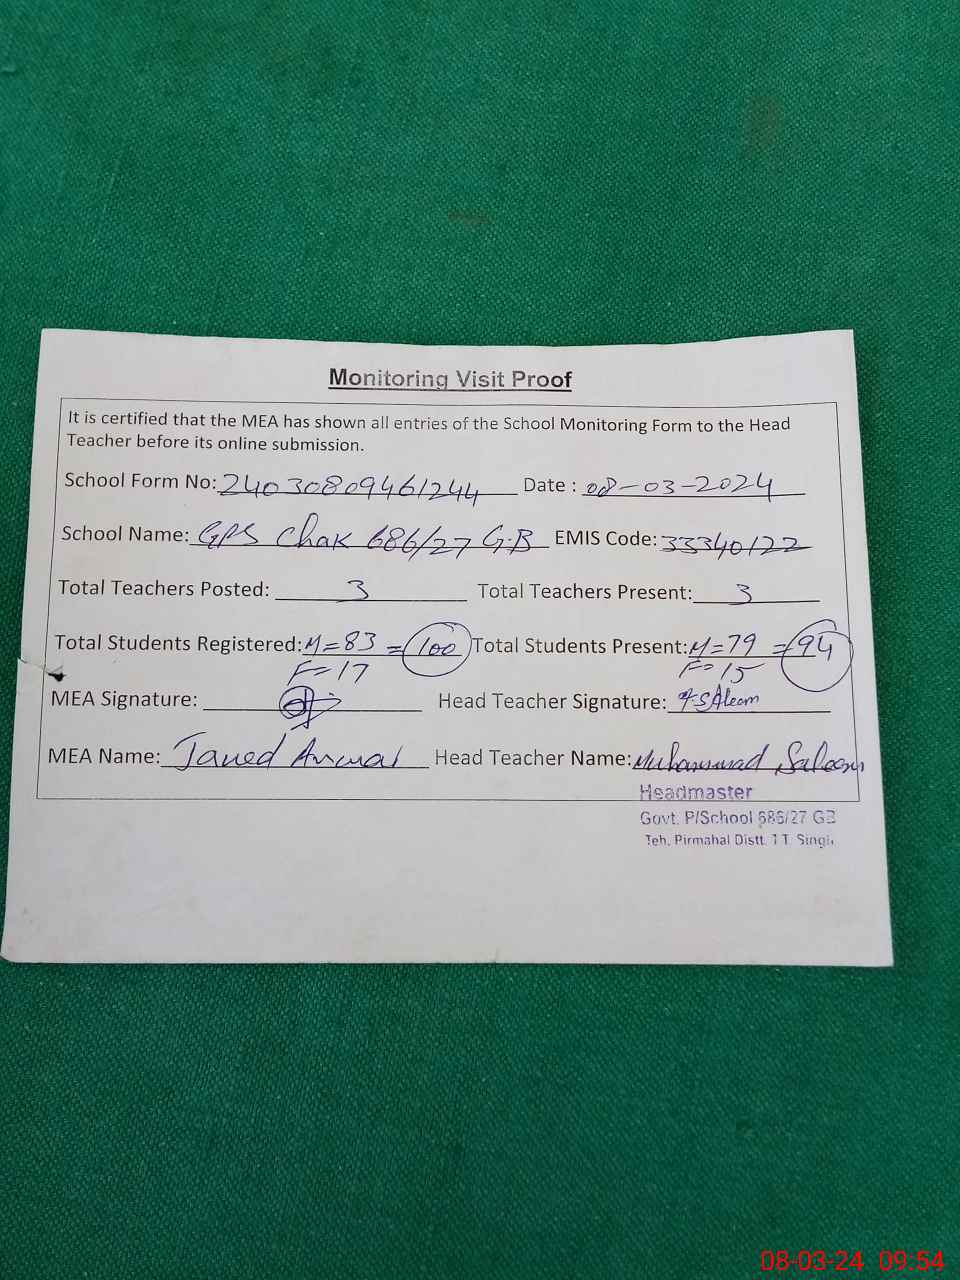 Monitoring Visit Proof
It is certified that the MEA has shown all entries of the School Monitoring Form to the Head
Teacher before its online submission.
School Form No: 24030809461244 Date : 08-03-2024
School Name: GPS Chak 686/27 G.B EMIS Code: 33340122
Total Teachers Posted: 3 Total Teachers Present: 3
Total Students Registered: M=83 = 100 Total Students Present: M=79 = 94
F=17 F=15
MEA Signature: Head Teacher Signature: Saleem
MEA Name: Javed Anwar Head Teacher Name: Muhammad Saleem
Headmaster
Govt. P/School 686/27 GB
Teh. Pirmahal Distt. T.T. Singh
08-03-24 09:54